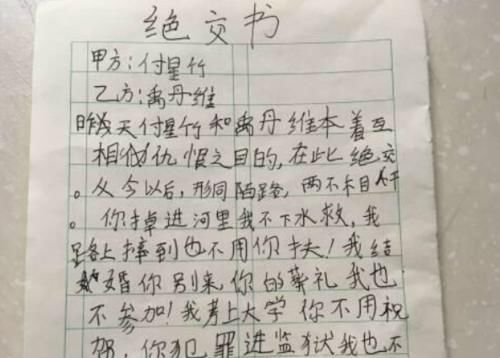 绝交书
甲方:付星竹
乙方:禹丹维
昨天付星竹和禹丹维本着互
相仇恨之目的,在此绝交
。从今以后,形同陌路,两不相干
。你掉进河里我不下水救,我
路上摔到也不用你扶!我结
婚你别来你的葬礼我也
不参加!我考上大学你不用祝
贺,你犯罪进监狱我也不